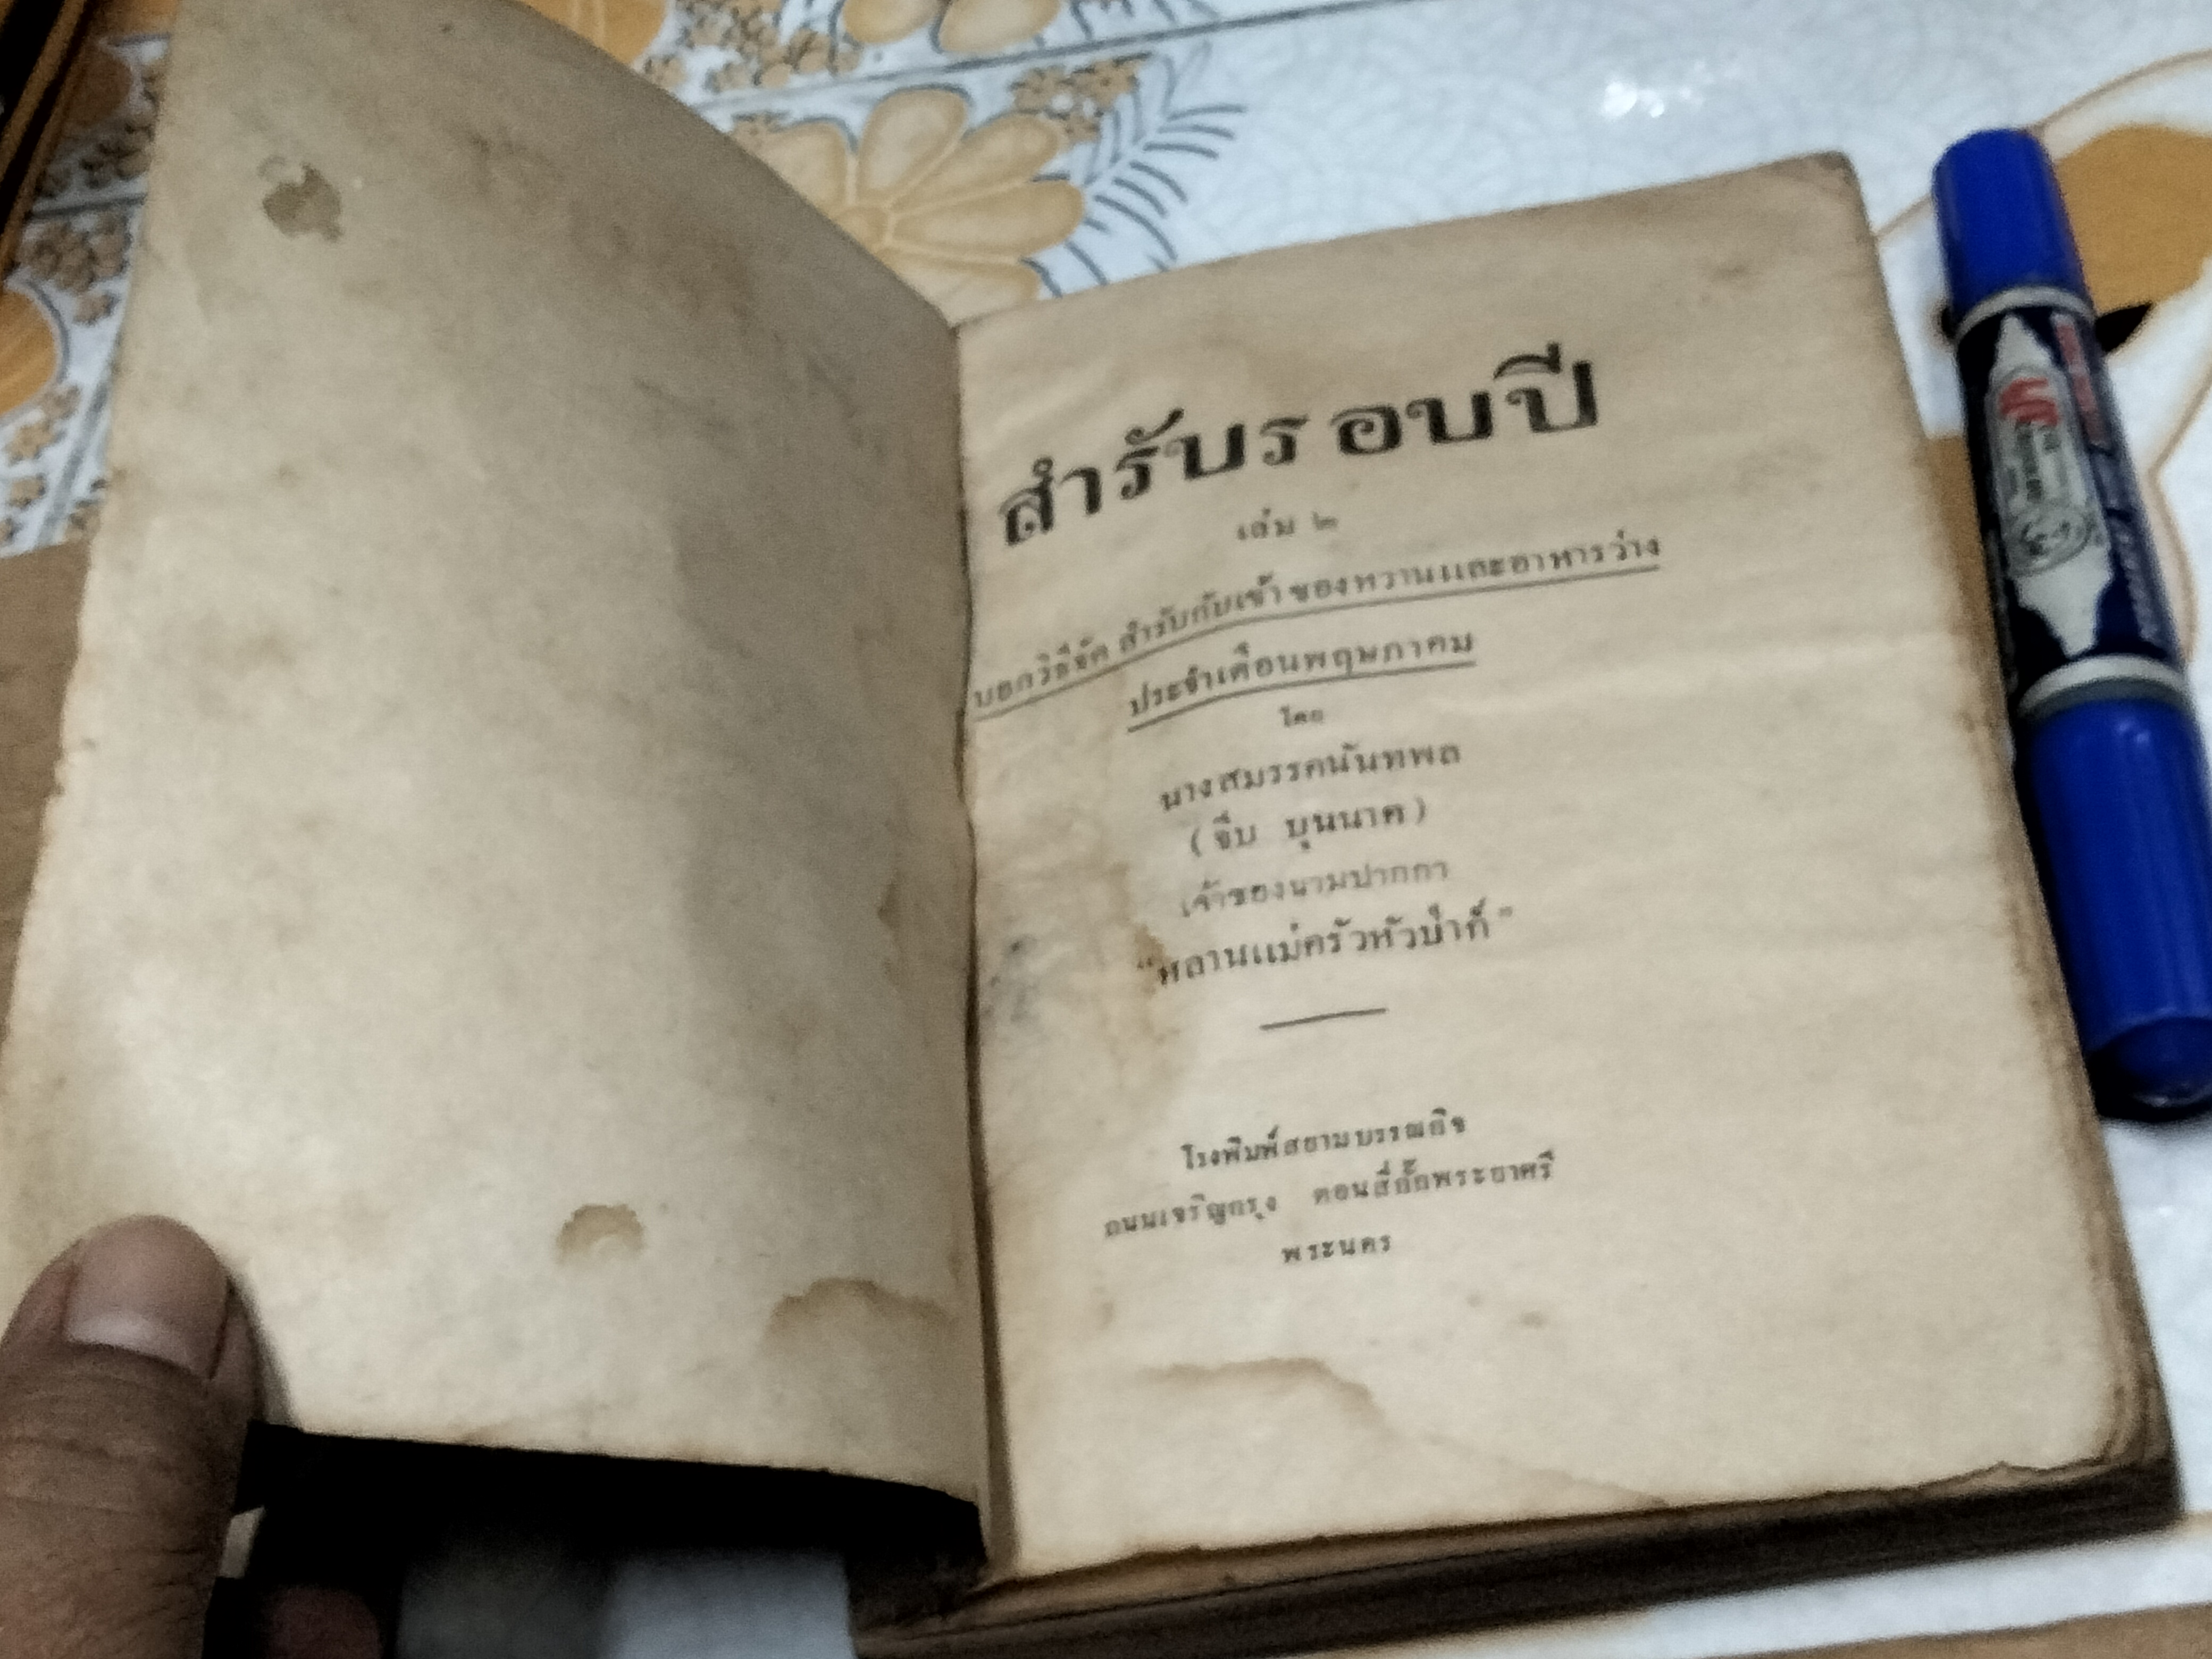 สำรับรอบปี
เล่ม ๒
บอกวิธีจัด สำรับกับเข้า ของหวานและอาหารว่าง
ประจำเดือนพฤษภาคม
โดย
นางสมรรคนันทพล
(จีบ บุนนาค)
เจ้าของนามปากกา
“หลานแม่ครัวหัวป่าก์”
โรงพิมพ์สยามบรรณกิจ
ถนนเจริญกรุง ตอนสี่กั๊กพระยาศรี
พระนคร